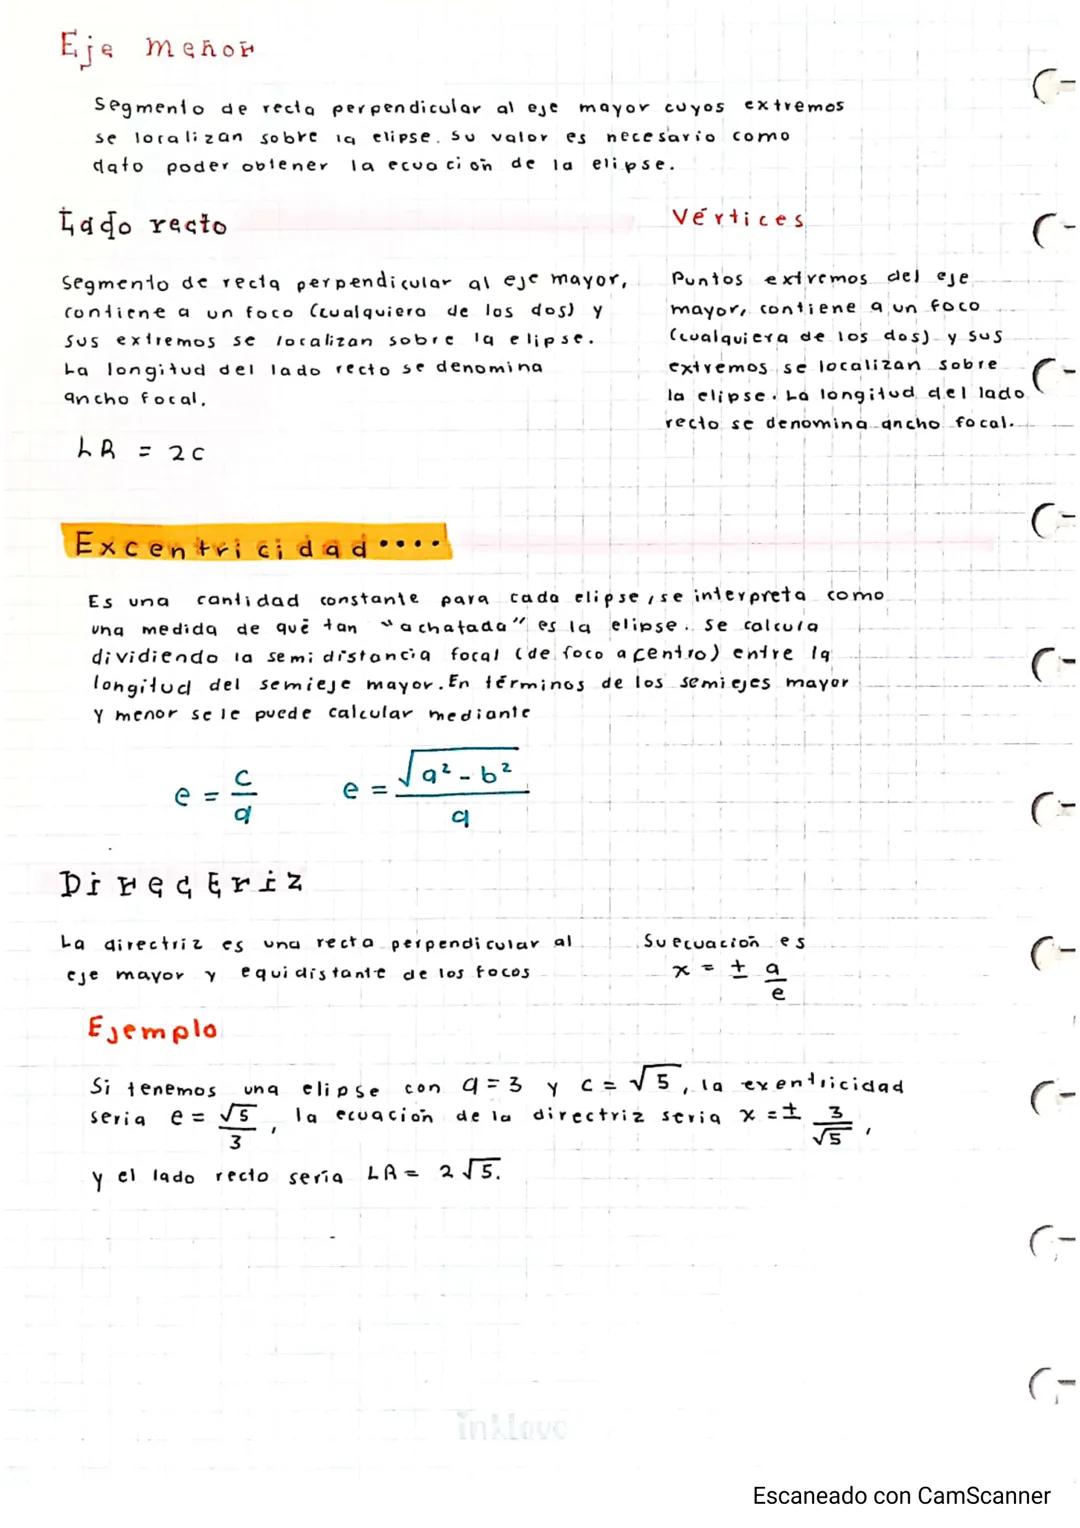 Eje menor
Segmento de recta perpendicular al eje mayor cuyos extremos
se localizan sobre la elipse. Su valor es necesario como
dato poder obtener la ecuación de la elipse.
Lado recto
Segmento de recta perpendicular al eje mayor,
contiene a un foco (cualquiera de los dos) y
sus extremos se localizan sobre la elipse.
La longitud del lado recto se denomina
ancho focal.
LR = 2c
Vértices
Puntos extremos del eje
mayor, contiene a un foco
(cualquiera de los dos) y sus
extremos se localizan sobre
la elipse. La longitud del lado
recto se denomina ancho focal.
Excentricidad....
Es una cantidad constante para cada elipse, se interpreta como
una medida de qué tan "achatada" es la elipse. Se calcula
dividiendo la semidistancia focal (de foco a centro) entre la
longitud del semieje mayor. En términos de los semiejes mayor
y menor se le puede calcular mediante
e = c/a e = √(a² - b²)/a
Directriz
La directriz es una recta perpendicular al
eje mayor y equidistante de los focos
Su ecuación es
x = ± a/e
Ejemplo
Si tenemos una elipse con a = 3 y c = √5, la exentricidad
seria e = √5/3, la ecuación de la directriz seria x = ± 3/√5,
y el lado recto sería LR = 2√5.
inklove
Escaneado con CamScanner